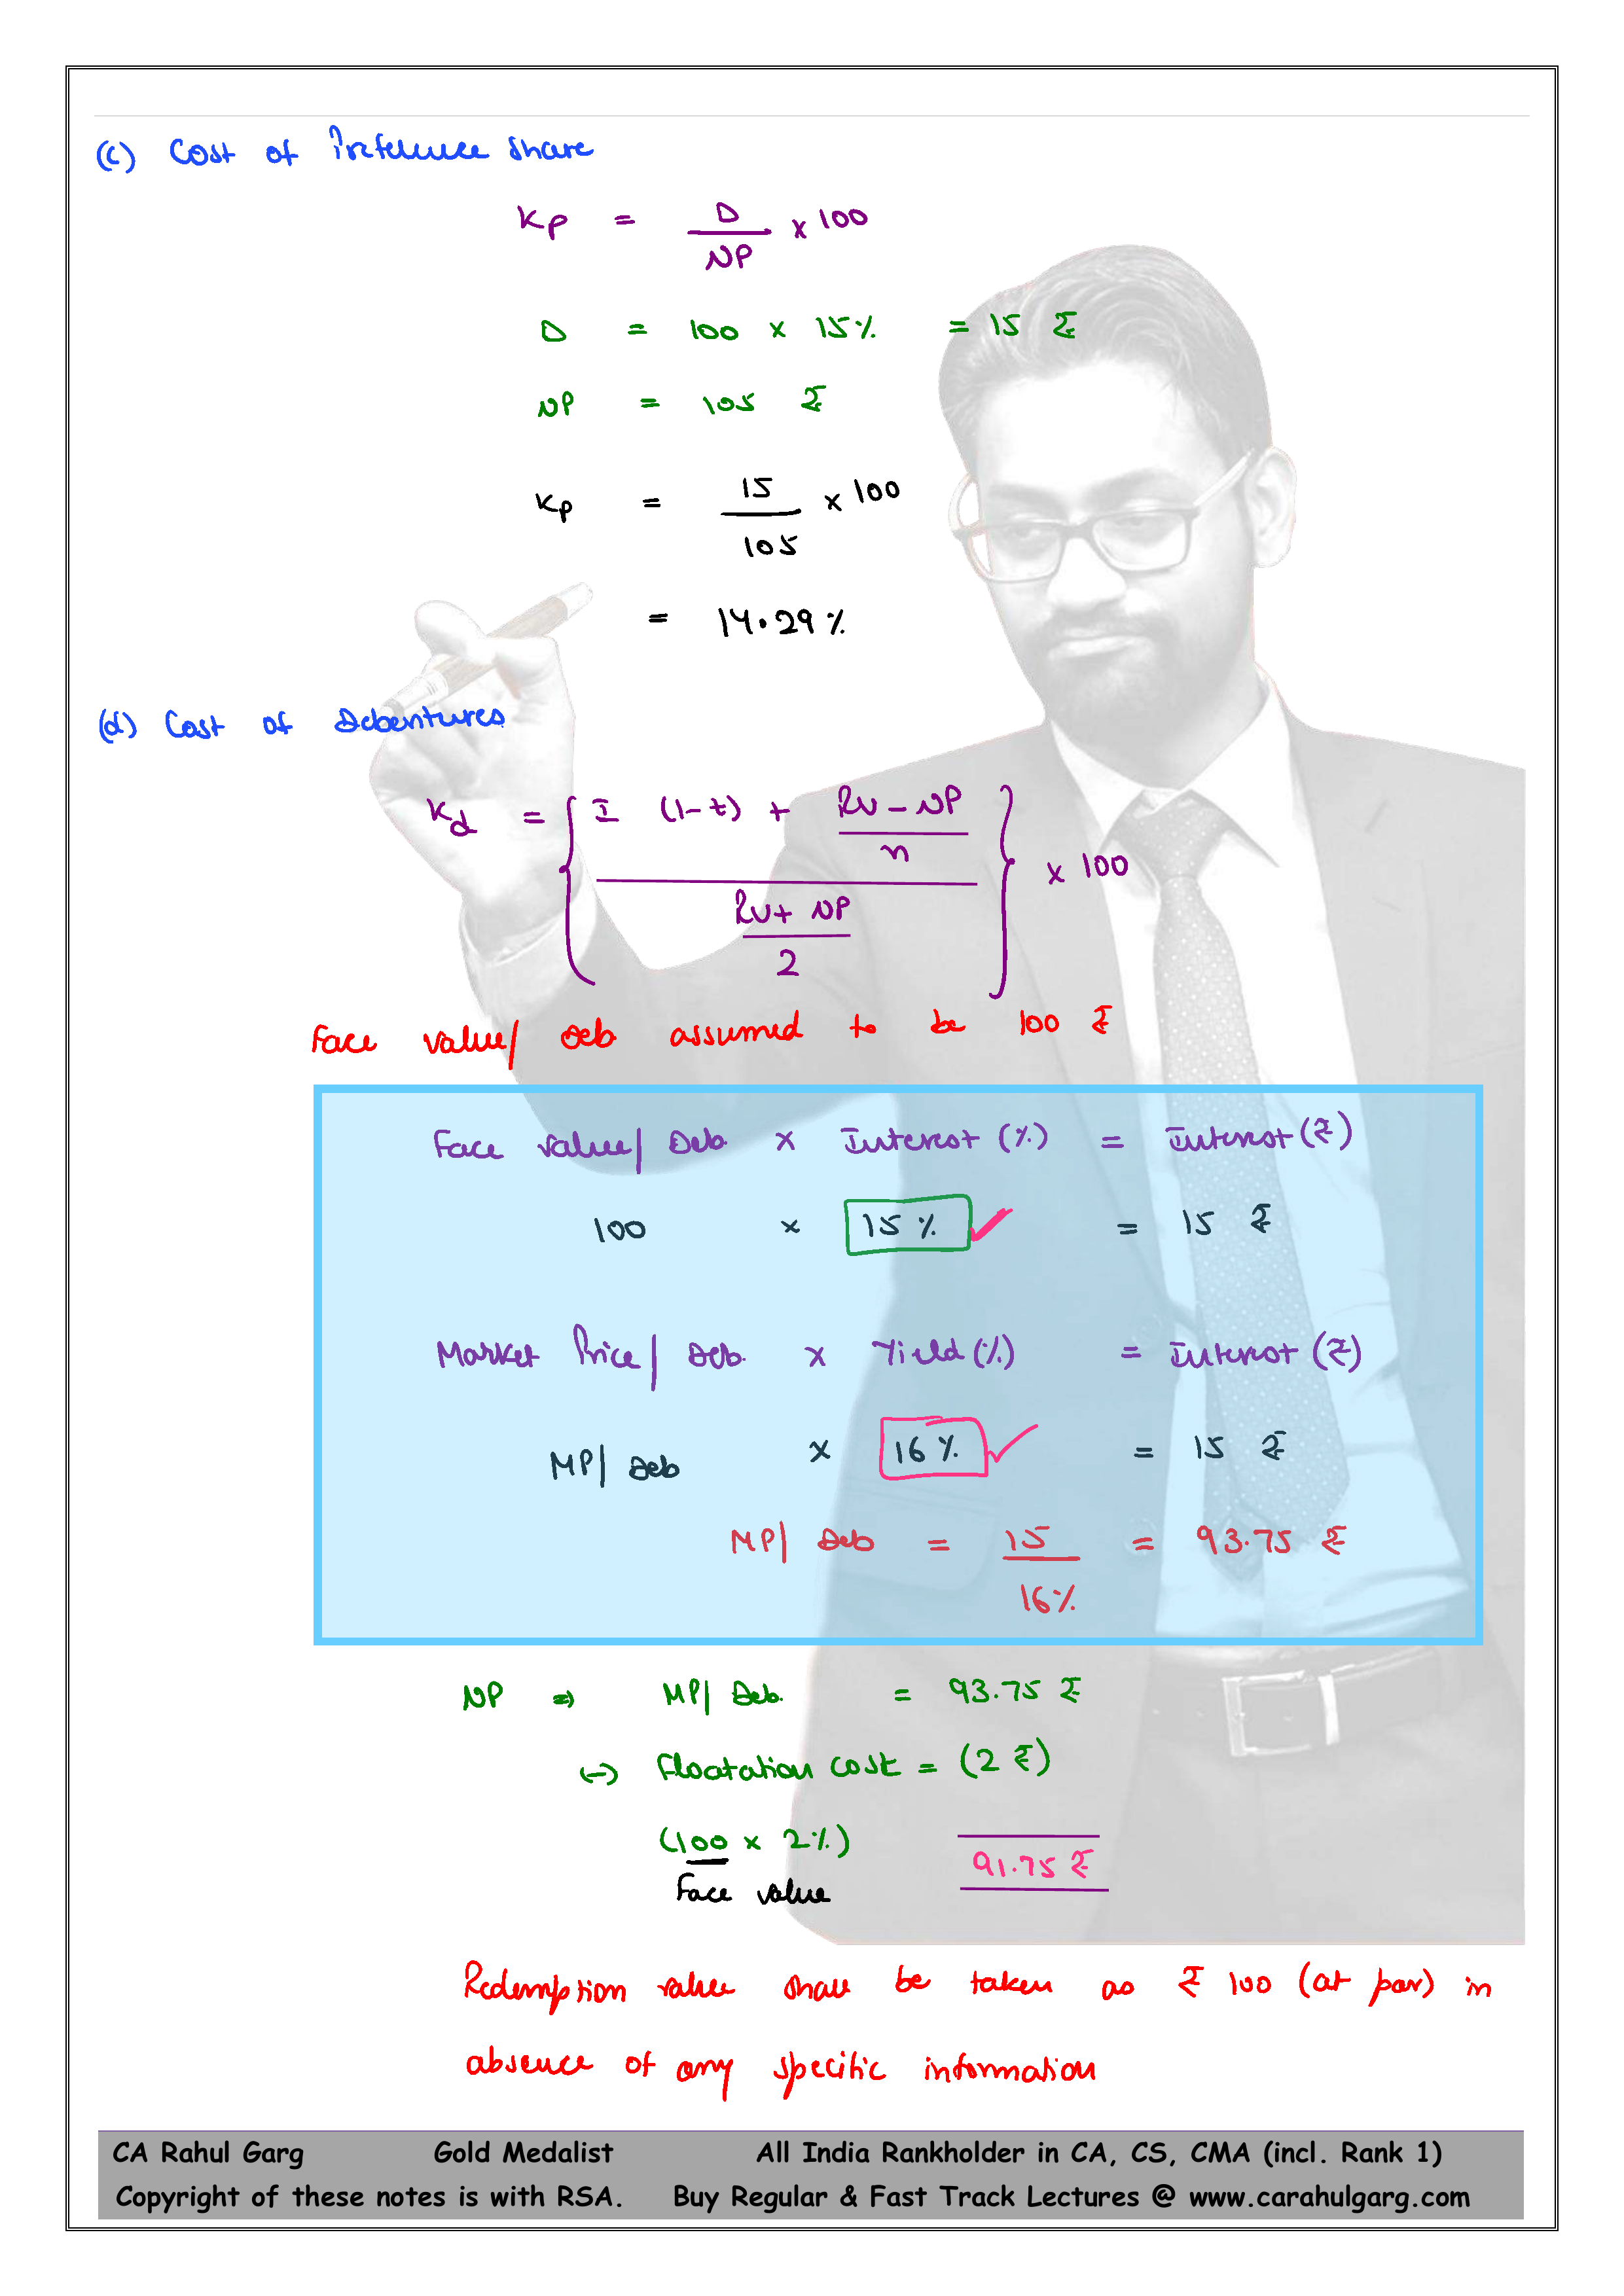 (c) Cost of Preference Share
Kp = D / NP × 100
D = 100 × 15% = 15 ₹
NP = 105 ₹
Kp = 15 / 105 × 100
= 14.29%
(d) Cost of Debentures
Kd = { I (1-t) + (RV - NP) / n / (RV + NP) / 2 } × 100
Face value/ Deb assumed to be 100 ₹
Face value/ Deb. × Interest (%) = Interest (₹)
100 × 15% ✓ = 15 ₹
Market Price/ Deb. × Yield (%) = Interest (₹)
MP/ Deb × 16% ✓ = 15 ₹
MP/ Deb = 15 / 16% = 93.75 ₹
NP ⇒ MP/ Deb. = 93.75 ₹
(-) Floatation cost = (2 ₹)
(100 × 2%)
Face value
91.75 ₹
Redemption value shall be taken as ₹ 100 (at par) in
absence of any specific information
CA Rahul Garg Gold Medalist All India Rankholder in CA, CS, CMA (incl. Rank 1)
Copyright of these notes is with RSA. Buy Regular & Fast Track Lectures @ www.carahulgarg.com